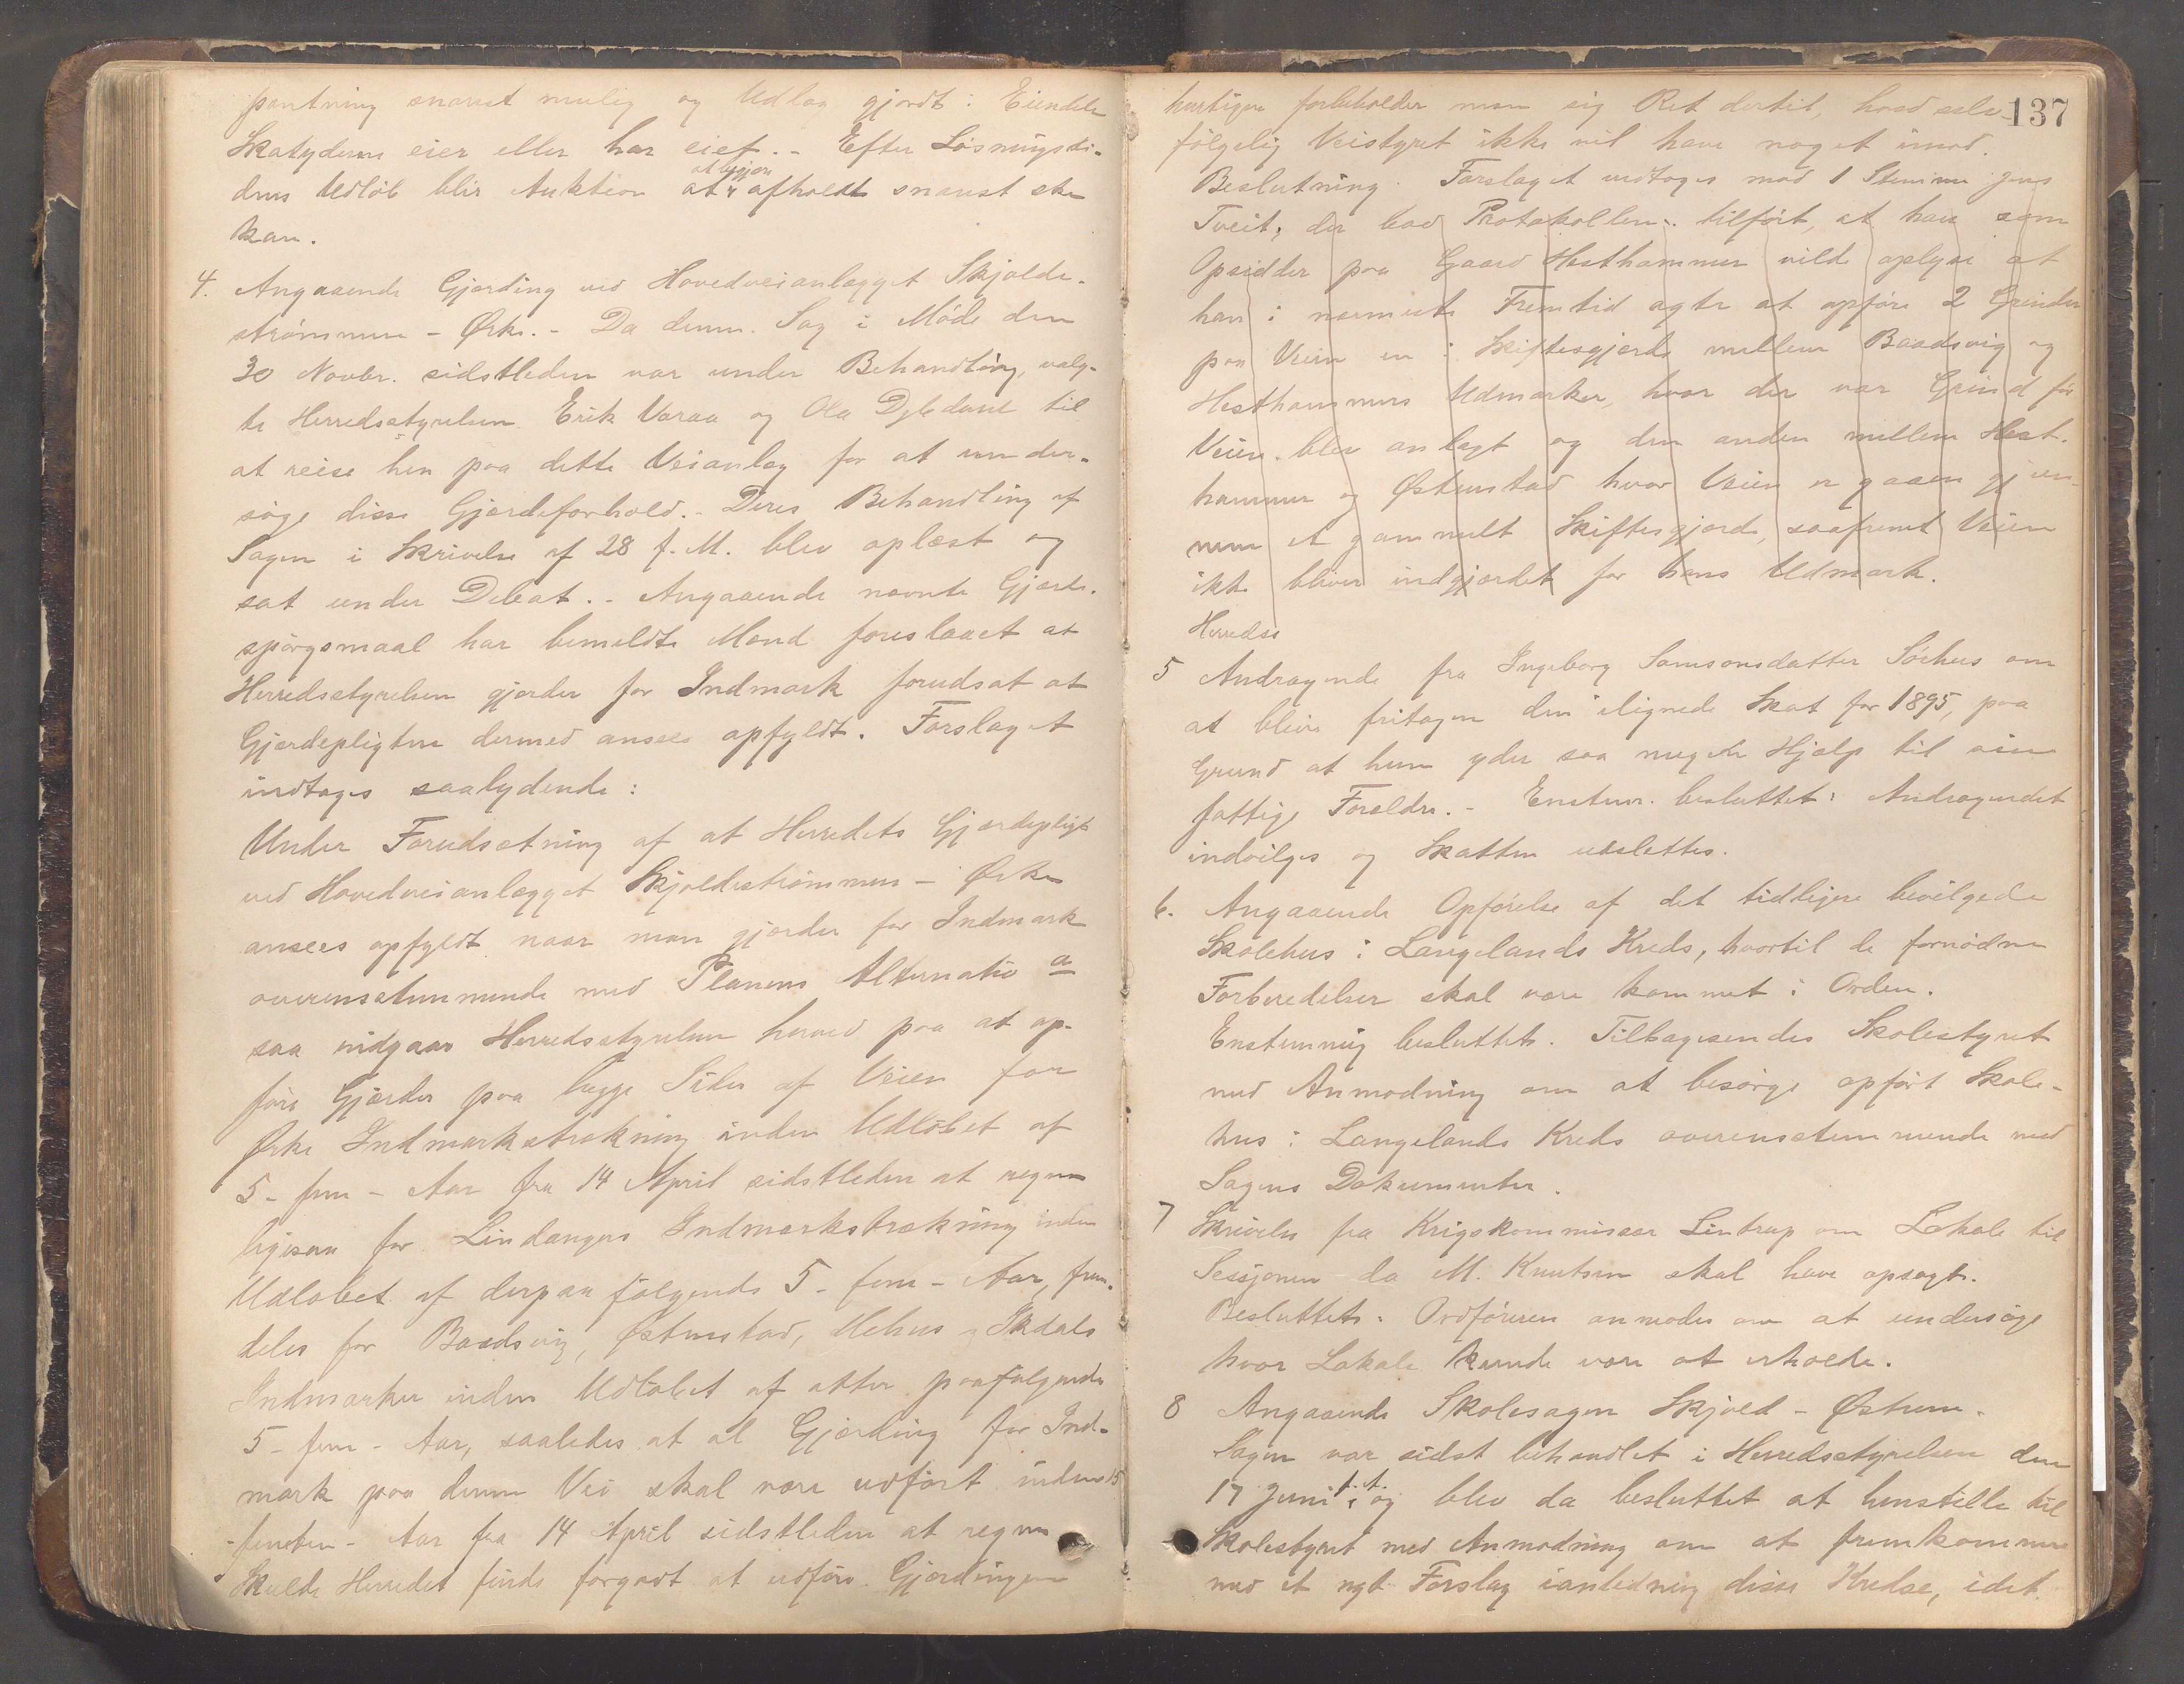 pantning snarest mulig og Udlæg gjordt i Eiendele
Skatyderne eier eller har eiet. - Efter Løsningsti-
dens Udløb blir Auktion at afholdt snarest ske
at begjære
kan.
4. Angaaende Gjærding ved Hovedveianlægget Skjolde-
strømmen - Ørke. - Da denne Sag i Møde den
30 Novbr. sidstleden var under Behandling, valg-
te Herredsstyrelsen Erik Varaa og Ola Dybdahl til
at reise hen paa dette Veianlæg for at under-
søge disse Gjærdeforhold. - Deres Behandling af
Sagen i Skrivelse af 28 f. M. blev oplæst og
sat under Debat. - Angaaende nævnte Gjærde-
spørgsmaal har bemeldte Mænd foreslaaet at
Herredsstyrelsen gjærder for Indmark forudsat at
Gjærdepligten dermed ansees opfyldt. Forslaget
indtoges saalydende:
Under Forudsætning af at Herredets Gjærdepligt
ved Hovedveianlægget Skjoldestrømmen - Ørke
ansees opfyldt naar man gjærder for Indmark
overensstemmende med Planens Alternativ a
saa indgaar Herredsstyrelsen herved paa at op-
føre Gjærder paa begge Sider af Veien for
Ørke Indmarkstrækning inden Udløbet af
5 - fem - Aar fra 14 April sidstleden at regne
ligesaa for Lindanger Indmarkstrækning inden
Udløbet af derpaa følgende 5 - fem - Aar, frem-
deles for Baadsvig, Østenstad, Mehus og Ikdals
Indmarker inden Udløbet af atter paafølgende
5 - fem - Aar, saaledes at al Gjærding for Ind-
mark paa denne Vei skal være udført inden 15
- femten - Aar fra 14 April sidstleden at regne
Skulde Herredet finde forgodt at udføre Gjærdingen
137
hurtigere forbeholder man sig Ret dertil, hvad selv-
følgelig Veistyret ikke vil have noget imod.
Beslutning. Forslaget vedtoges mod 1 Stemme Jens
Tveit, der bad Protokollen tilført, at han som
Opsidder paa Gaard Hesthammer vilde oplyse at
han i nærmeste Fremtid agte at opføre 2 Grinder
paa Veien en i Skiftesgjærde mellem Baadsvig og
Hesthammers Udmarker, hvor der var Grind før
Veien blev anlagt og den anden mellem Hest-
hammer og Østenstad hvor Veien er gaaen gjen-
nem et gammelt Skiftesgjærde, saafremt Veien
ikke bliver indgjærdet for hans Udmark.
Herredss
5 Andragende fra Ingeborg Samsonsdatter Sørhus om
at blive fritagen den ilignede Skat for 1895, paa
Grund at hun yder saa megen Hjælp til sine
fattige Forældre. - Enstem. besluttet: Andragendet
indvilges og Skatten udslettes.
6. Angaaende Opførelse af det tidligere bevilgede
Skolehus i Langelands Kreds, hvortil de fornødne
Forberedelser skal være kommet i Orden.
Enstemmig besluttet. Tilbagesendes Skolestyret
med Anmodning om at besørge opført Skole-
hus i Langelands Kreds overensstemmende med
Sagens Dokumenter.
7 Skrivelse fra Krigskommissær Lintrup om Lokale til
Sessjonen da M. Knutsen skal have opsagt.
Besluttet: Ordføreren anmodes om at undersøge
hvor Lokale kunde være at erholde.
8 Angaaende Skolesagen Skjold - Østrem.
Sagen var sidst behandlet i Herredsstyrelsen den
17 Juni f. A. og blev da besluttet at henstille til
Skolestyret med Anmodning om at fremkomme
med et nyt Forslag ianledning disse Kredse, idet